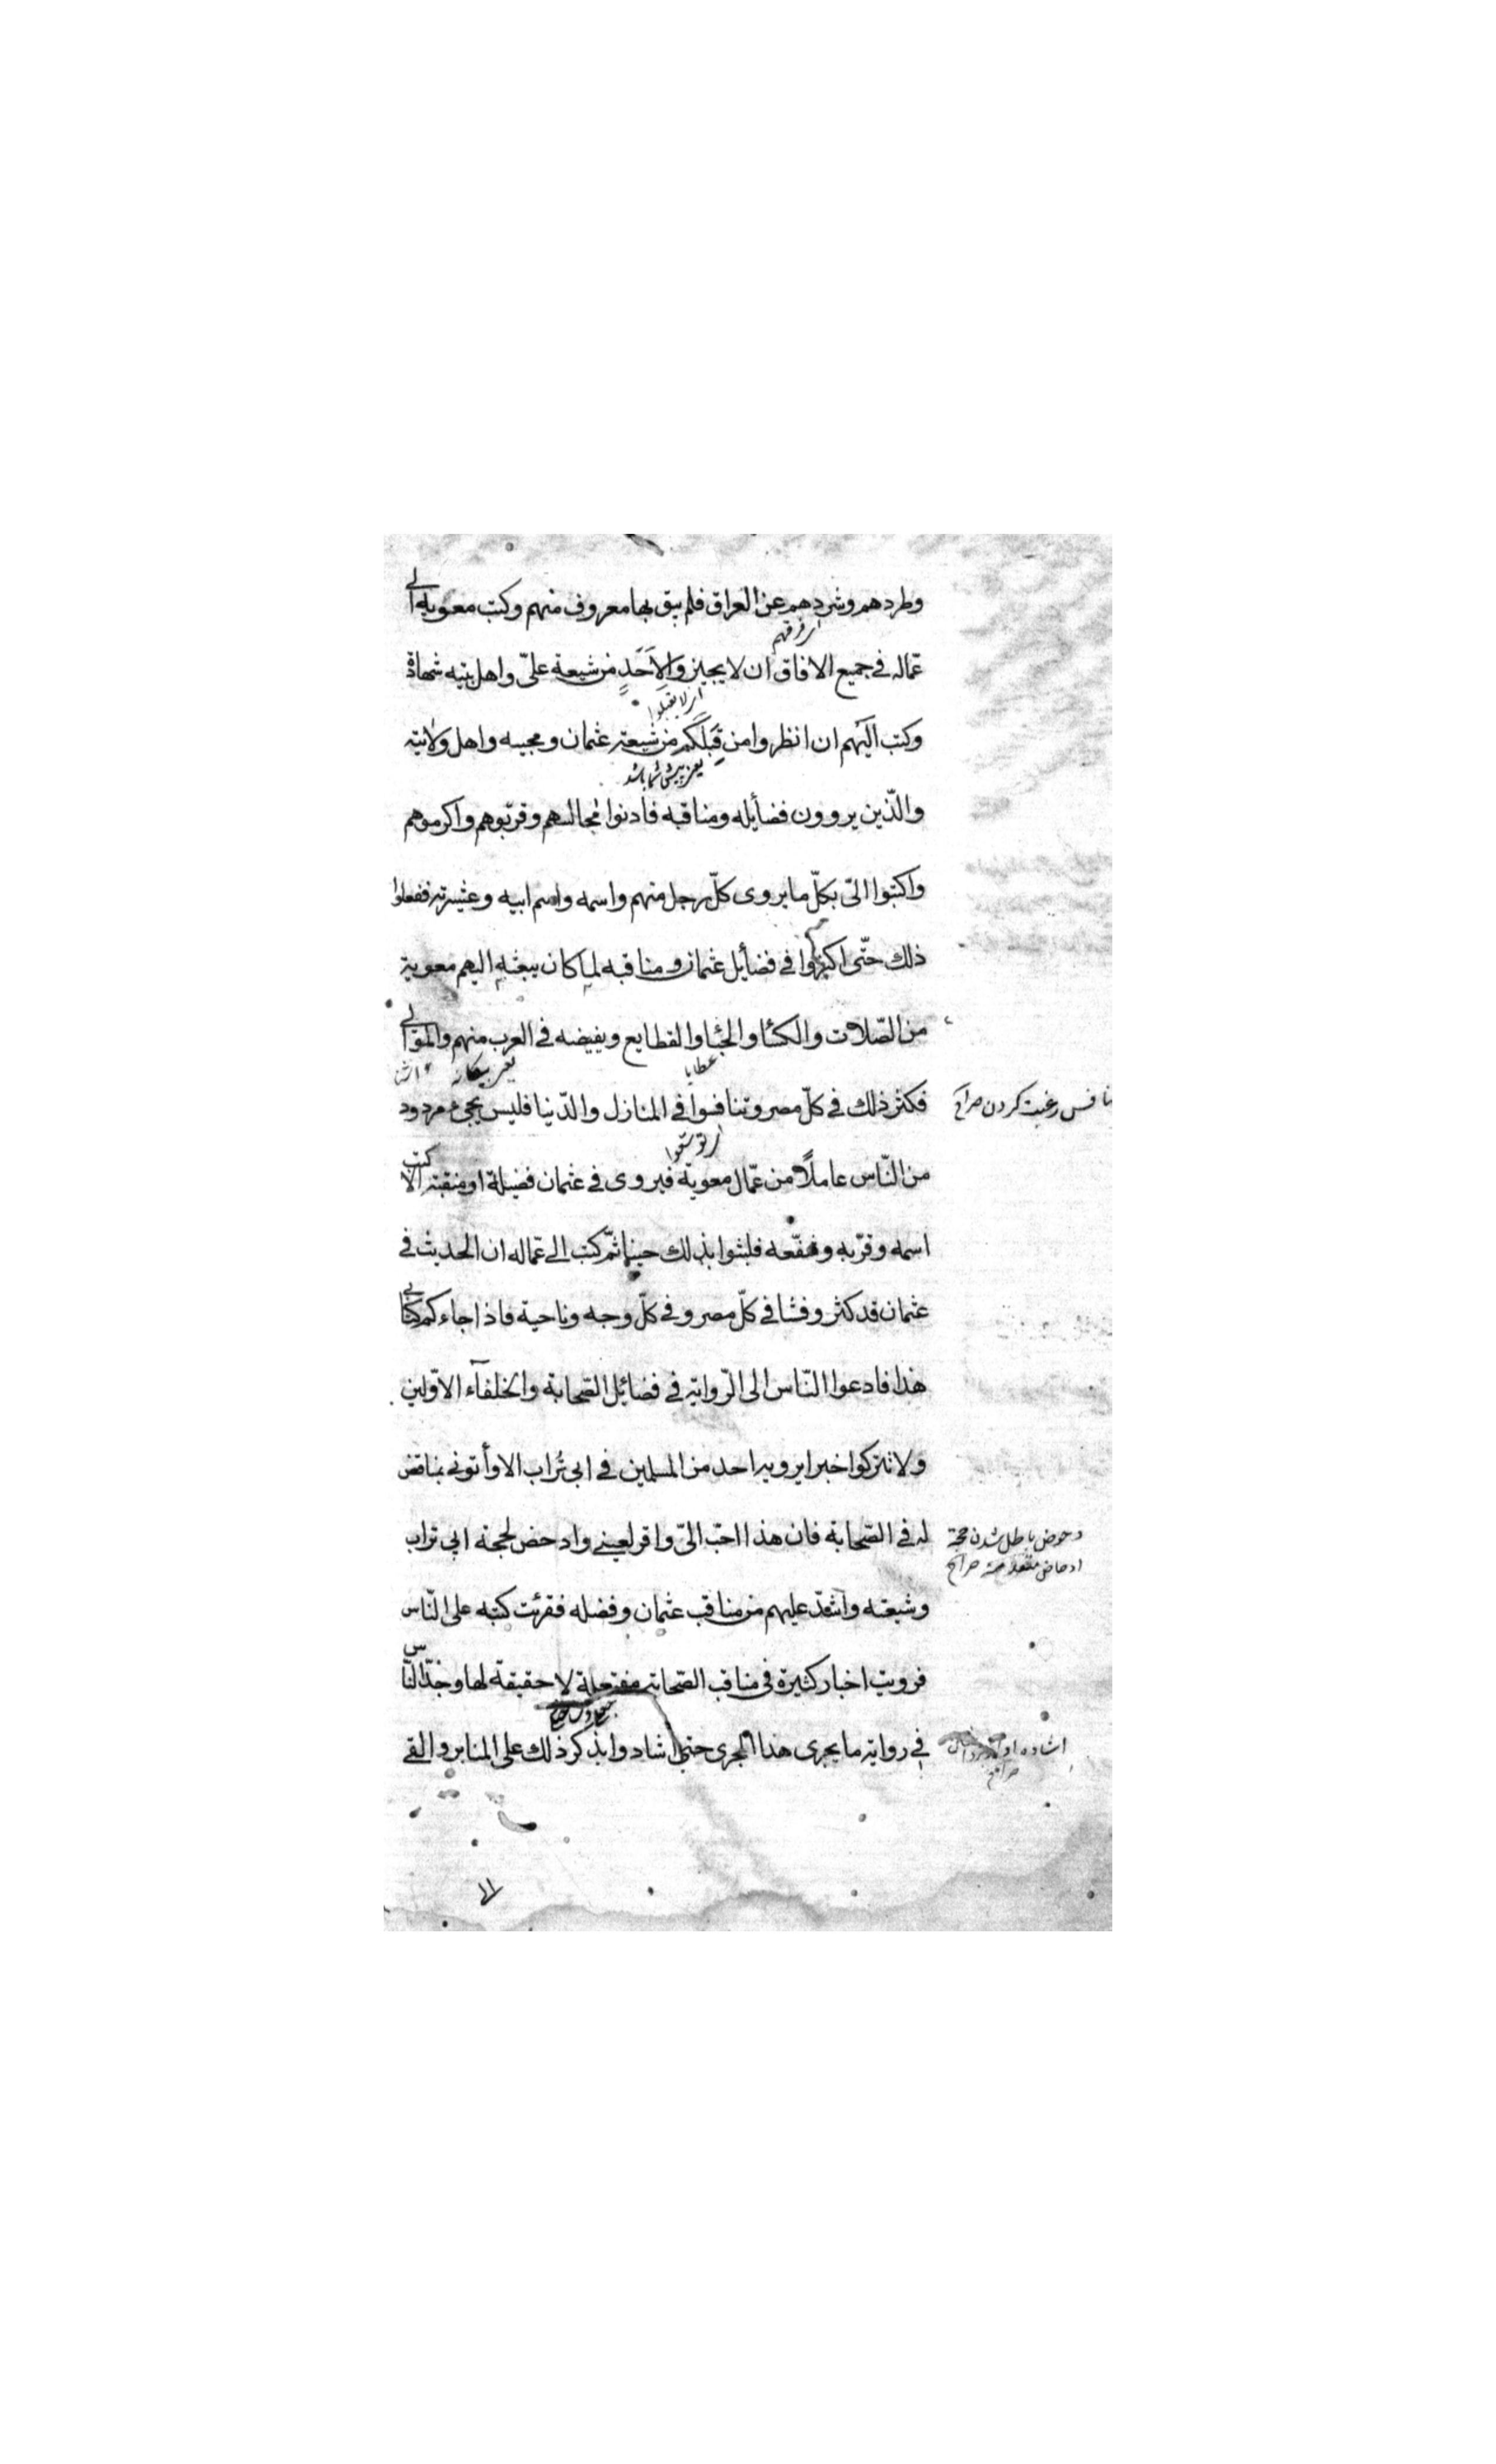 وطردهم وشردهم عن العراق فلم يبق بها معروف منهم وكتب معوية الى
اى فرقهم
عماله في جميع الافاق ان لا يجيزوا لاَحَدٍ من شيعة علىّ واهل بيته شهادة
اى لا يقبلوا
وكتب اليهم ان انظروا من قِبَلَكُم من شيعة عثمان ومحبيه واهل ولايته
يعنى پيش شما باشد
والّذين يروون فضأيله ومناقبه فادنوا مجالسهم وقرّبوهم واكرموهم
واكتبوا الىّ بكلّ ما يروى كلّ رجل منهم واسمه واسم ابيه وعشيرته ففعلوا
ذلك حتّى اكثروا في فضأيل عثمان ومناقبه لما كان يبعثه اليهم معوية
من الصّلات والكسٔا والحبٔا والقطايع ويفيضه في العرب منهم والموالى
عطايا
فكثر ذلك في كلّ مصر وتنافسوا في المنازل والدّنيا فليس يجىء مردود
نافس رغبت كردن صراح
من النّاس عاملاً من عمّال معوية فيروى في عثمان فضيلة او منقبة الا كتب
اسمه وقرّبه وشفّعه فلبثوا بذلك حينا ثمّ كتب الى عماله ان الحديث في
عثمان قد كثر وفشا في كلّ مصر وفي كلّ وجه وناحية فاذا جاءكم كتابى
هذا فادعوا النّاس الى الرّواية في فضائل الصّحابة والخلفآء الاوّلين
ولا تتركوا خبرا يرويه احد من المسلمين في ابى تُراب الا وأتونى بمناقض
له في الصّحابة فان هذا احبّ الىّ واقر لعينى وادحض لحجة ابى تراب
دحوض باطل شدن حجة
ادحاض متعد منه صراح
وشيعته واشدّ عليهم من مناقب عثمان وفضله فقرئت كتبه على النّاس
فرويت اخبار كثيرة فى مناقب الصّحابة مفتعلة لا حقيقة لها وجدّ النّاس
في رواية ما يجرى هذا المجرى حتى اشادوا بذكر ذلك على المنابر والقى
صراح